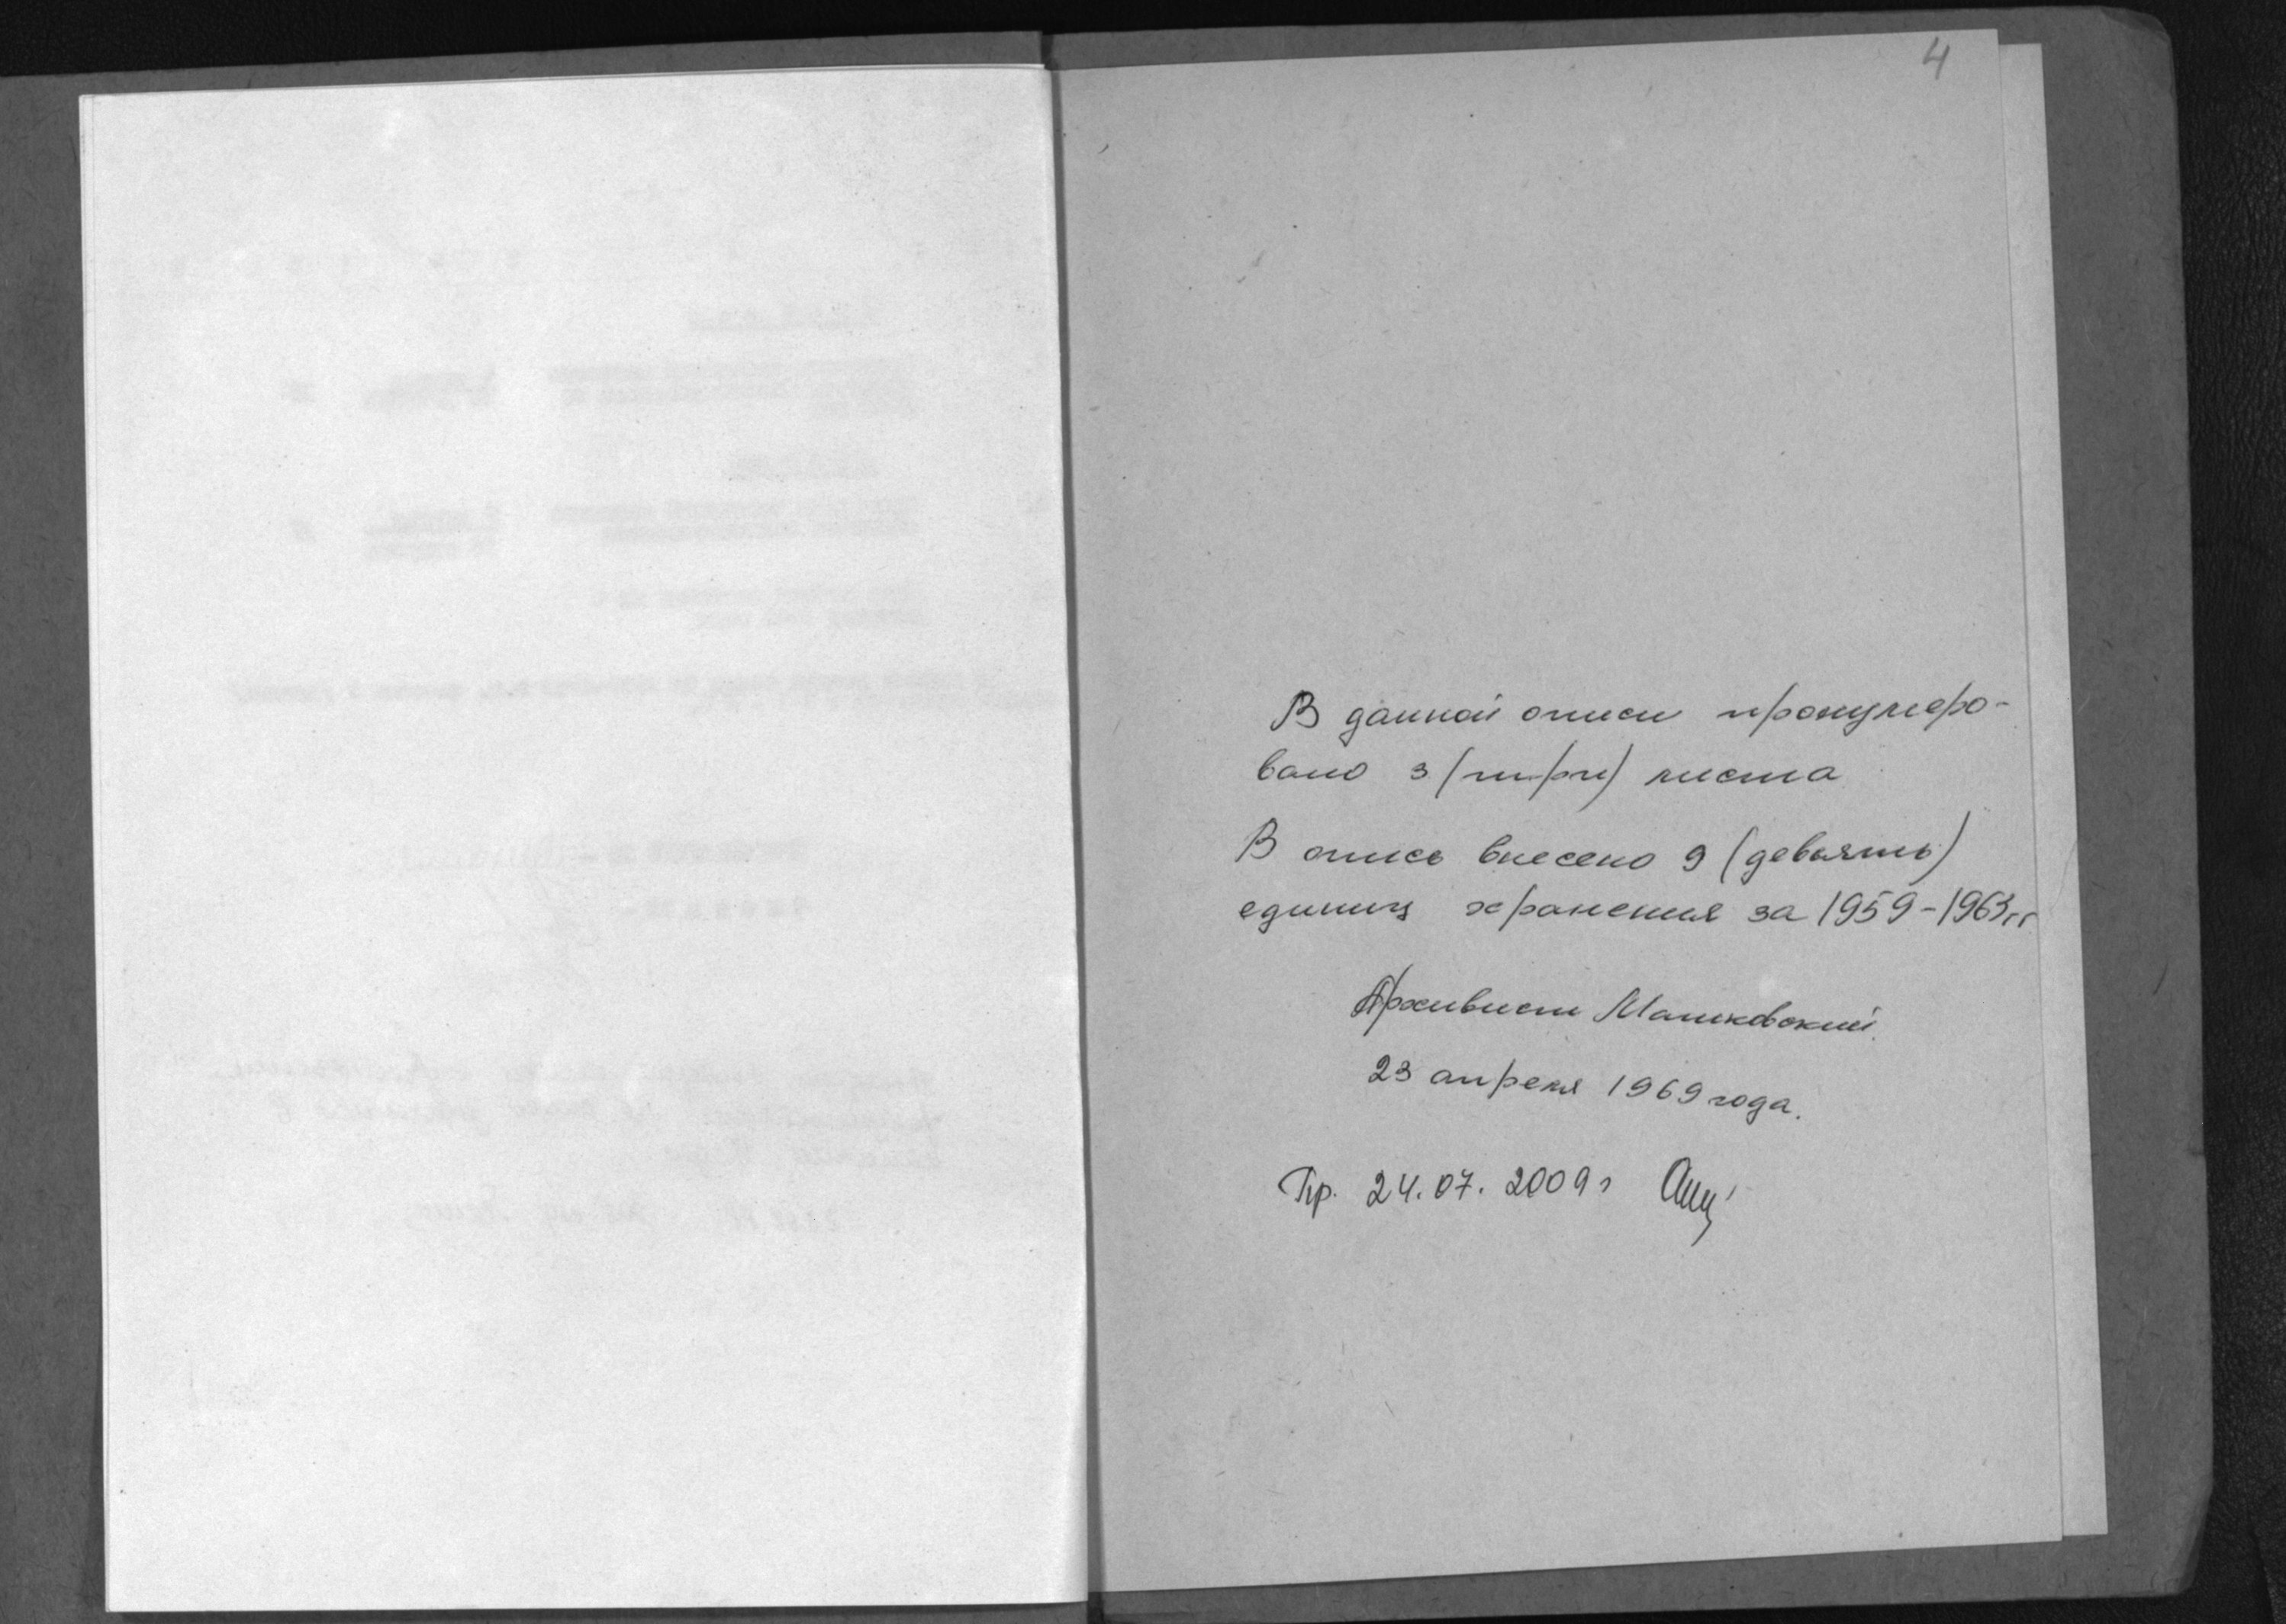 4
В данной описи пронумеро-
вано 3 (три) листа
В опись внесено 9 (девять)
единиц хранения за 1959-1963гг
Архивист
23 апреля 1969 года.
Пр. 24.07.2009г